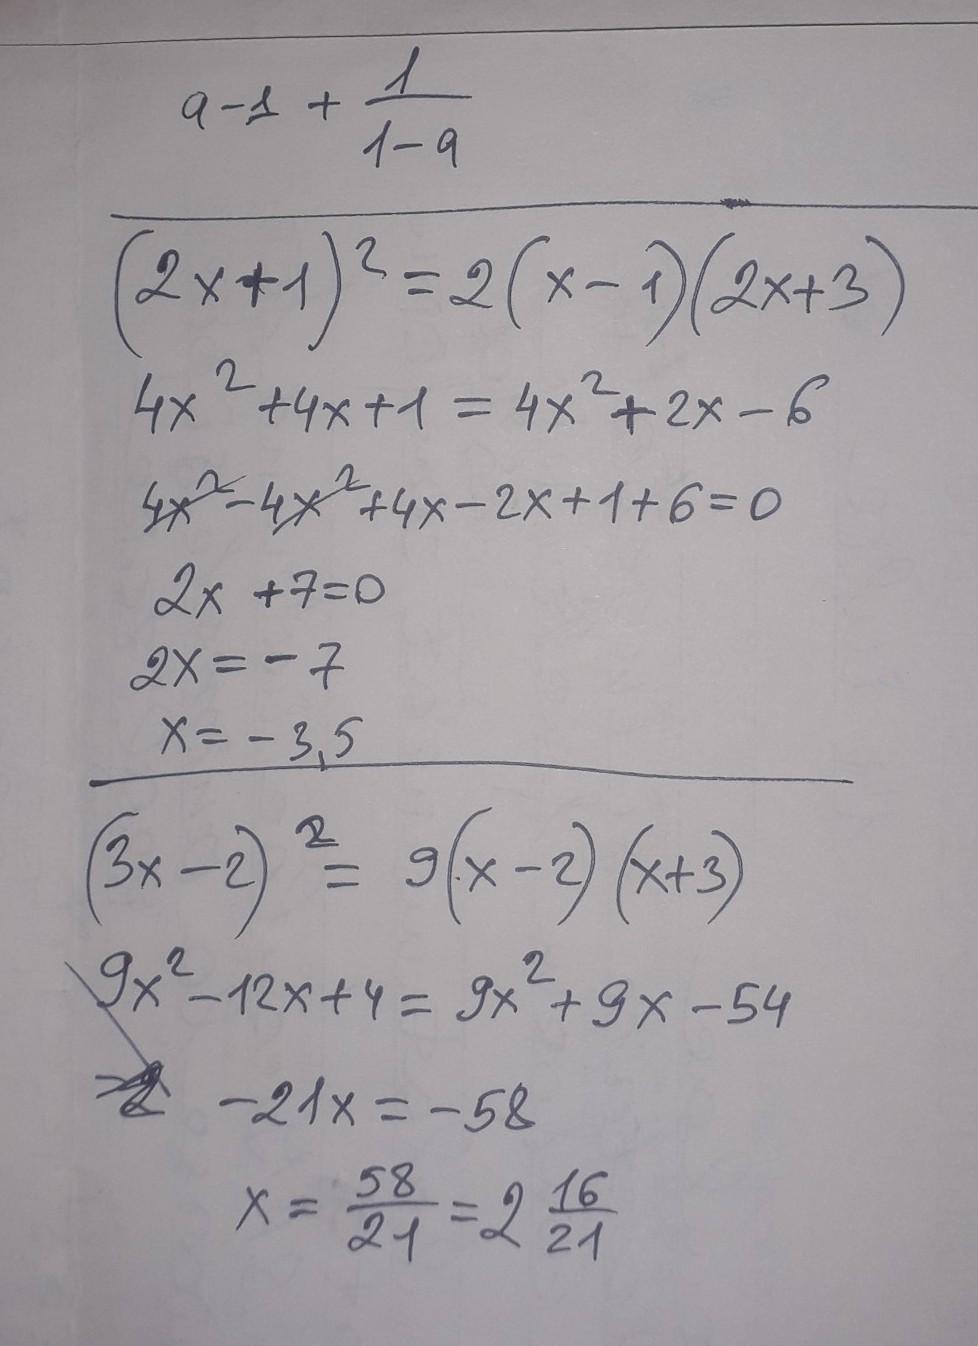 a-1 + 1/(1-a)
(2x+1)² = 2(x-1)(2x+3)
4x² +4x+1 = 4x²+2x-6
4x²-4x²+4x-2x+1+6=0
2x +7=0
2x = -7
x = -3,5
(3x-2)² = 9(x-2)(x+3)
9x²-12x+4 = 9x²+9x-54
-21x = -58
x = 58/21 = 2 16/21